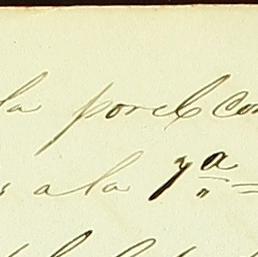 la por el Con
s a la 7ª =